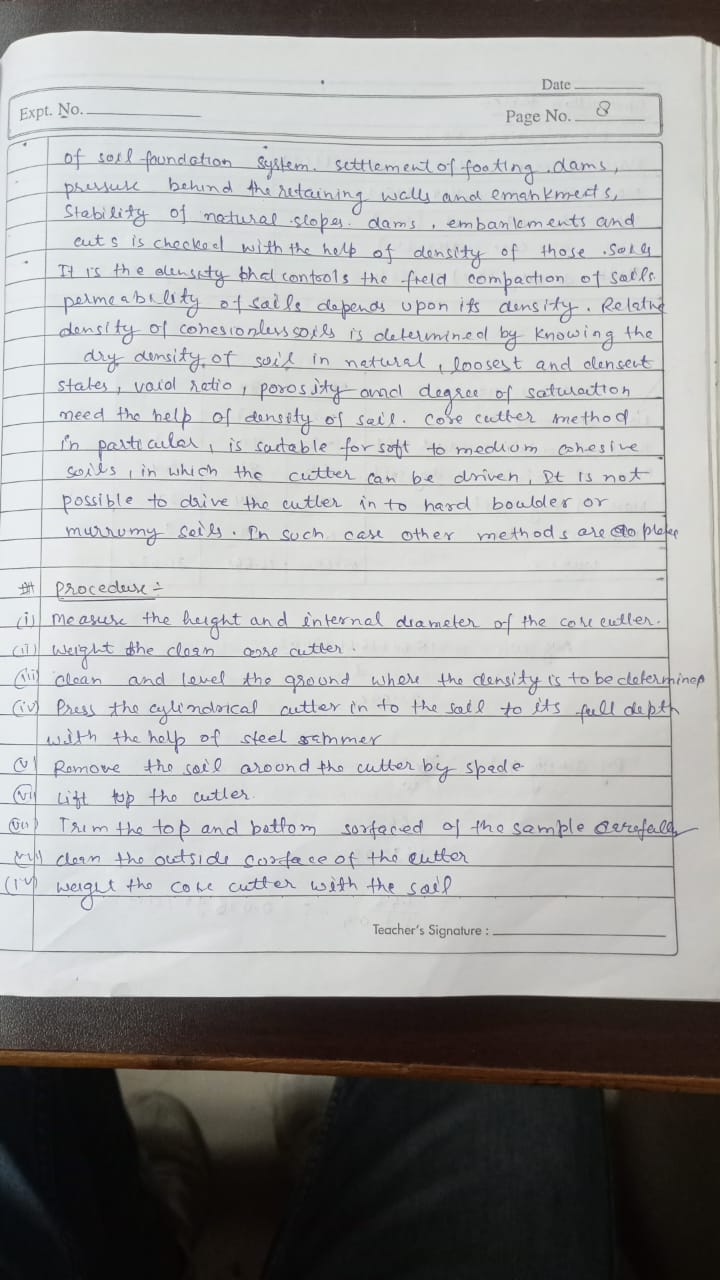 Date
Expt. No.
Page No. 8
of soil foundation system. settlement of footing, dams,
pressure behind the retaining walls and emankments,
Stability of natural slopes. dams, embankments and
cuts is checked with the help of density of those soils
It is the density that controls the field compaction of soils.
permeability of soils depends upon its density. Relative
density of cohesionless soils is determined by knowing the
dry density of soil in natural, loosest and densest
states, void ratio, porosity and degree of saturation
need the help of density of soil. Core cutter method
in particular, is suitable for soft to medium cohesive
soils, in which the cutter can be driven, It is not
possible to drive the cutter in to hard boulder or
murrumy soils. In such case other methods are
# Procedure :-
(i) Measure the height and internal diameter of the core cutter.
(ii) weight the clean core cutter.
(iii) clean and level the ground where the density is to be determined
(iv) Press the cylindrical cutter in to the soil to its full depth
with the help of steel rammer
(v) Remove the soil around the cutter by spade
(vi) Lift up the cutter.
(vii) Trim the top and bottom sorfaced of the sample carefully
clean the outside sorface of the cutter
(iv) weight the core cutter with the soil
Teacher's Signature :